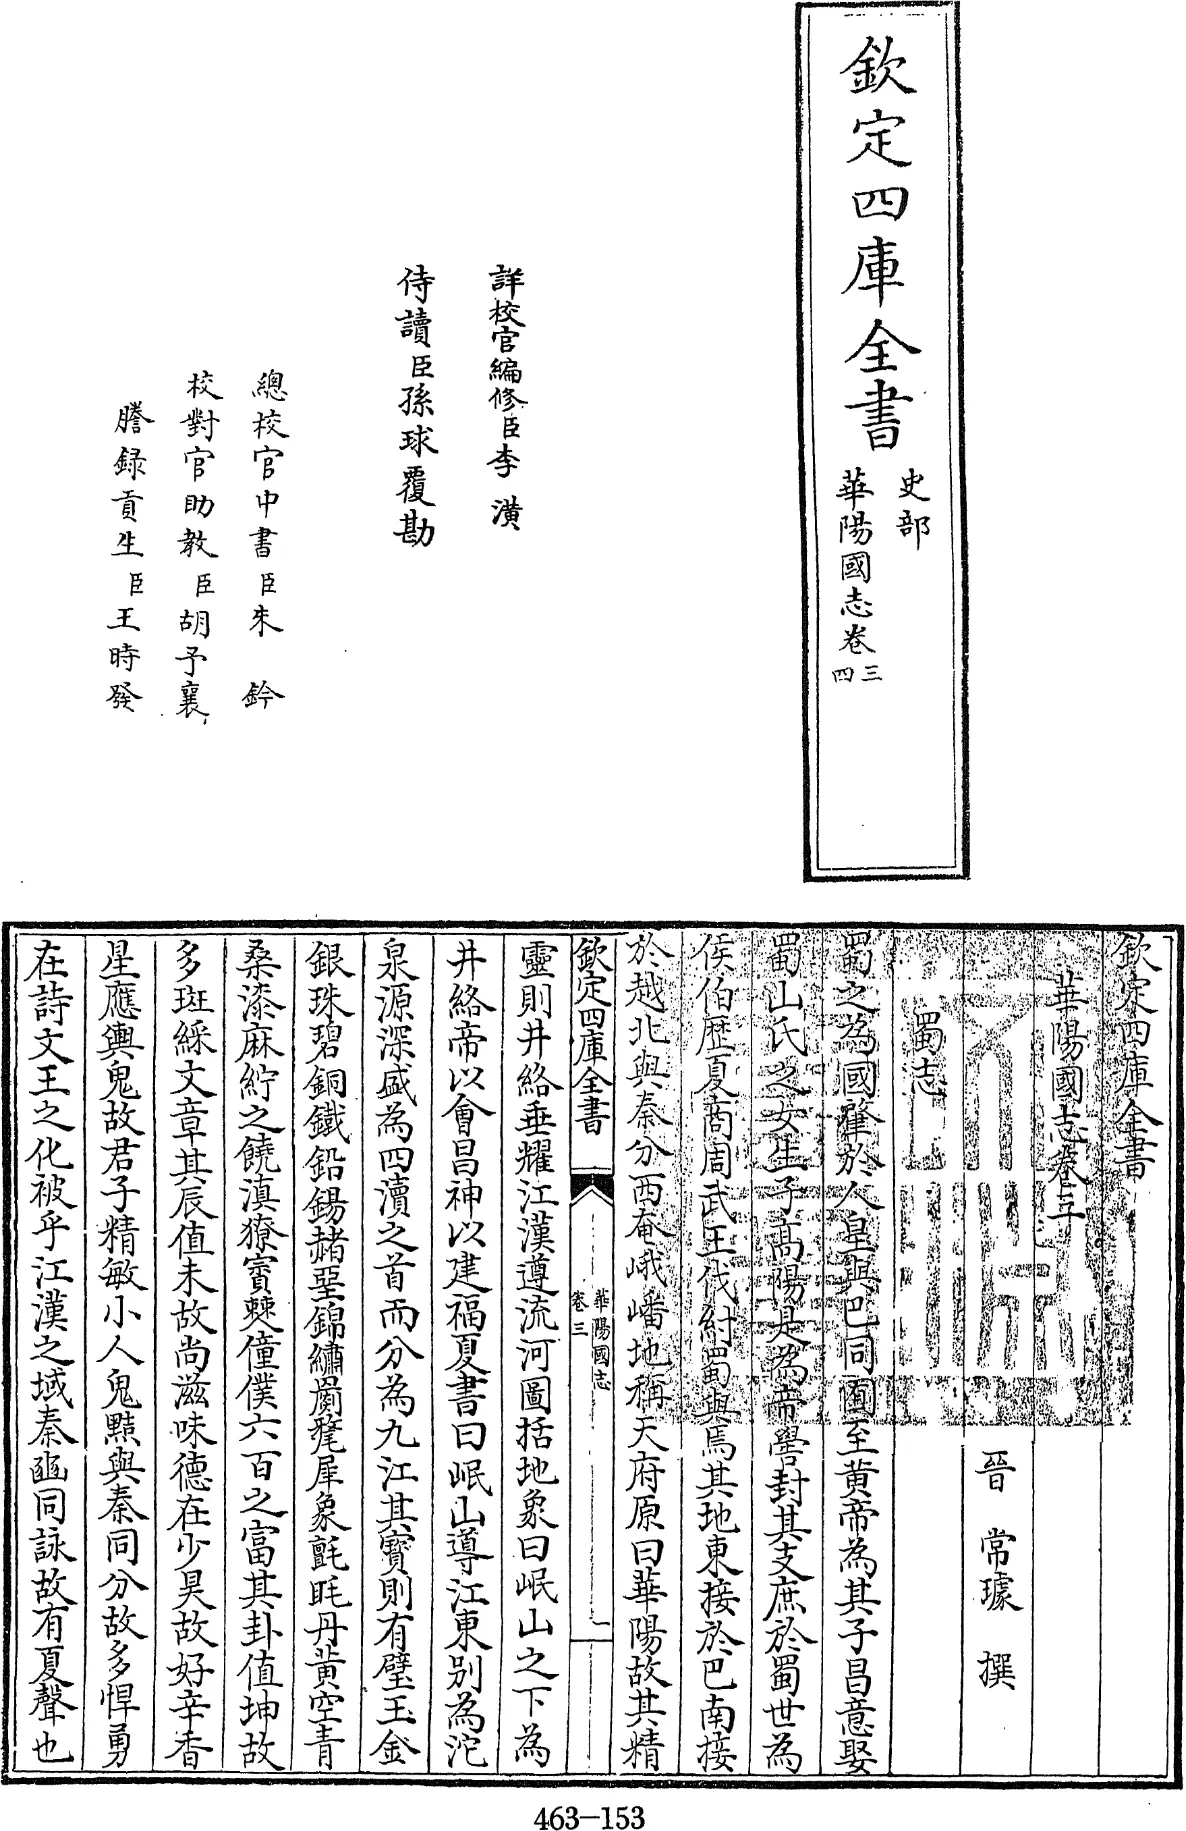 欽定四庫全書
史部
華陽國志卷三
四
詳校官編修臣李潢
侍讀臣孫球覆勘
總校官中書臣朱鈐
校對官助教臣胡予襄
謄録貢生臣王時發
欽定四庫全書
華陽國志卷三
晉 常璩 撰
蜀志
蜀之為國肇於人皇與巴同囿至黄帝為其子昌意娶
蜀山氏之女生子高陽是為帝嚳封其支庶於蜀世為
侯伯歴夏商周武王伐紂蜀與焉其地東接於巴南接
於越北與秦分西奄峨嶓地稱天府原曰華陽故其精
欽定四庫全書
華陽國志
卷三
一
靈則井絡垂耀江漢遵流河圖括地象曰岷山之下為
井絡帝以會昌神以建福夏書曰岷山導江東别為沱
泉源深盛為四瀆之首而分為九江其寶則有璧玉金
銀珠碧銅鐵鉛錫赭堊錦繡罽氂犀象氈毦丹黄空青
桑漆麻紵之饒滇獠賨僰僮僕六百之富其卦值坤故
多斑綵文章其辰值未故尚滋味德在少昊故好辛香
星應輿鬼故君子精敏小人鬼黠與秦同分故多悍勇
在詩文王之化被乎江漢之域秦豳同詠故有夏聲也
463-153